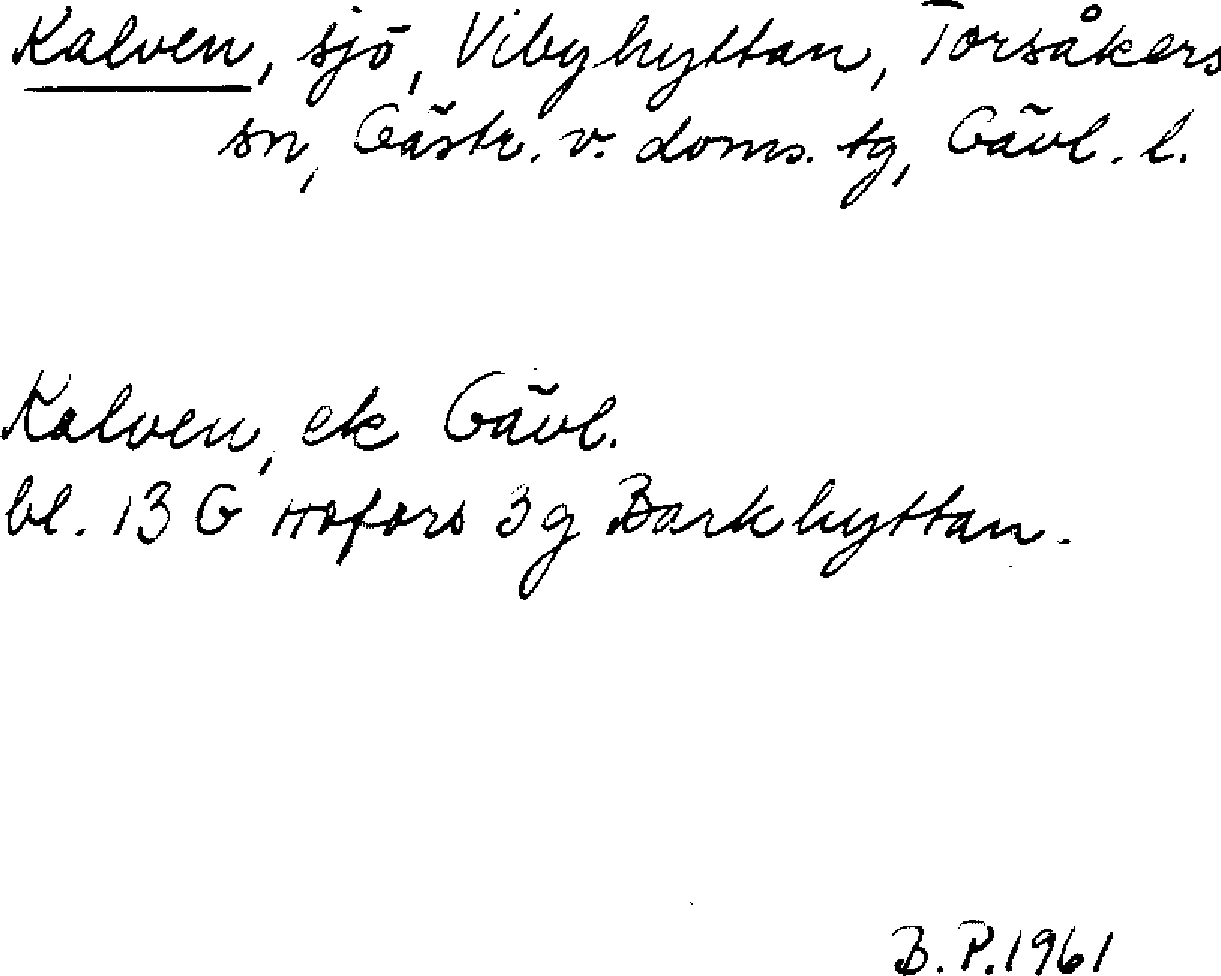 Kalven, sjö, Vibyhyttan, Torsåkers
sn, Gästr. v. doms. tg, Gävl. l.
Kalven, ek Gävl.
bl. 13 G Hofors 3g Barkhyttan.
B. P. 1961